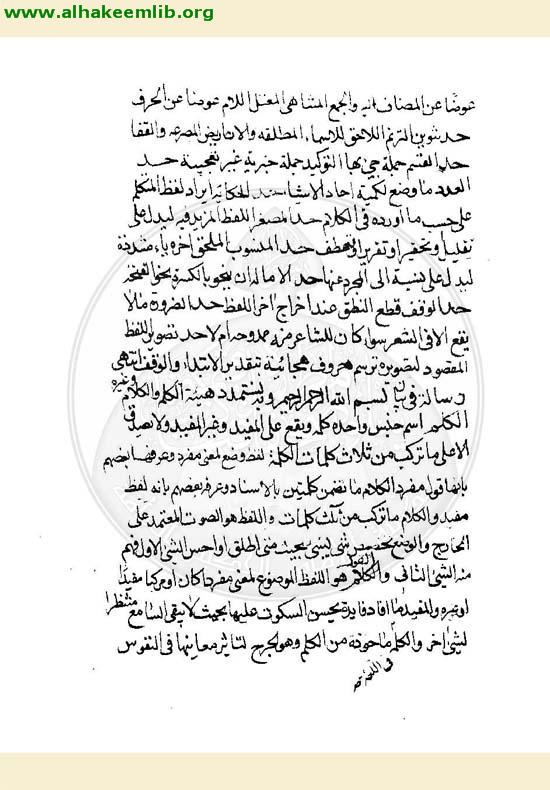 www.alhakeemlib.org
عوضا عن المضاف اليه والجمع المتناهى المعتل اللام عوضا عن الحرف
حد تنوين الترنم اللاحق للاسماء المطلقه والاعاريض المصرعه والقفا
حد القسم جملة جئ بها التوكيد جملة خبرية غير تعجبية حد
العدد ما وضع لكمية احاد الاشيا حد الحكاية ايراد لفظ المتكلم
على حسب ما اورده فى الكلام حد المصغر اللفظ المزيد فيه ليدل على
تقليل وتحقير او تقريب او تعطف حد المنسوب الملحق اخره ياء مشددة
ليدل على نسبة الى المجرد عنها حد الامالة ان ينحو بالكسرة نحو الفتحة
حد الوقف قطع النطق عند اخراج اخر اللفظ حد الضرورة ما لا
يقع الا فى الشعر سوا كان للشاعر منه مندوحة ام لا حد تصوير اللفظ
المقصود لتصويره برسم حروف هجائية بتقدير الابتداء والوقف انتهى
رسالة فى بيان بسم الله الرحمن الرحيم وبه نستمد هيئة الكلم والكلام وغيره
الكلم اسم جنس واحده كلمه ويقع على المفيد وغير المفيد ولا يصدق فى
الاعلى ما تركب من ثلاث كلمات الكلمة لفظ وضع لمعنى مفرد وعرفها بعضهم
بانها قول مفرد الكلام ما تضمن كلمتين بالاسناد وعرفه بعضهم بانه لفظ
مفيد والكلام ما تركب من ثلث كلمات واللفظ هو الصوت المعتمد على
المخارج والوضع تخصيص شئ بشئ بحيث متى اطلق او احس الشئ الاول فهم
منه الشئ الثانى والقول هو اللفظ الموضوع لمعنى مفردا كان او مركبا مفيدا
او غيره والمفيد ما افاد فايدة يحسن السكوت عليها بحيث لا يبقى السامع منتظرا
لشئ اخر والكلمه ماخوذة من الكلم وهو الجرح لتاثير معانيها فى النفوس